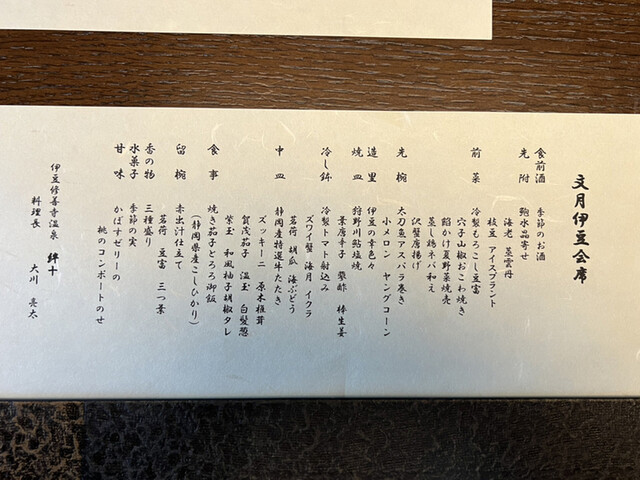 文月伊豆会席
食前酒 季節のお酒
先附 鮑水晶寄せ
海老 茎雲丹
枝豆 アイスプラント
前菜 冷製もろこし豆富
穴子山椒おこわ焼き
餡かけ夏野菜焼売
蒸し鶏ネバ和え
沢蟹唐揚げ
先椀 太刀魚アスパラ巻き
小メロン ヤングコーン
造里 伊豆の幸色々
焼皿 狩野川鮎塩焼
葉唐辛子 蓼酢 棒生姜
冷し鉢 冷製トマト射込み
ズワイ蟹 海月 イクラ
茗荷 胡瓜 海ぶどう
中皿 静岡産特選牛たたき
ズッキーニ 原木椎茸
賀茂茄子 温玉 白髪葱
紫玉 和風柚子胡椒タレ
食事 焼き茄子とろろ御飯
(静岡県産こしひかり)
留椀 赤出汁仕立て
茗荷 豆富 三つ葉
香の物 三種盛り
水菓子 季節の実
甘味 かぼすゼリーの
桃のコンポートのせ
伊豆修善寺温泉 絆十
料理長 大川 亮太